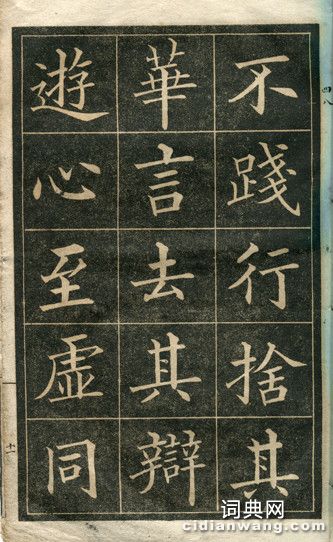 不踐行捨其
華言去其辯
遊心至虛同
四八
十一
词典网
cidianwang.com